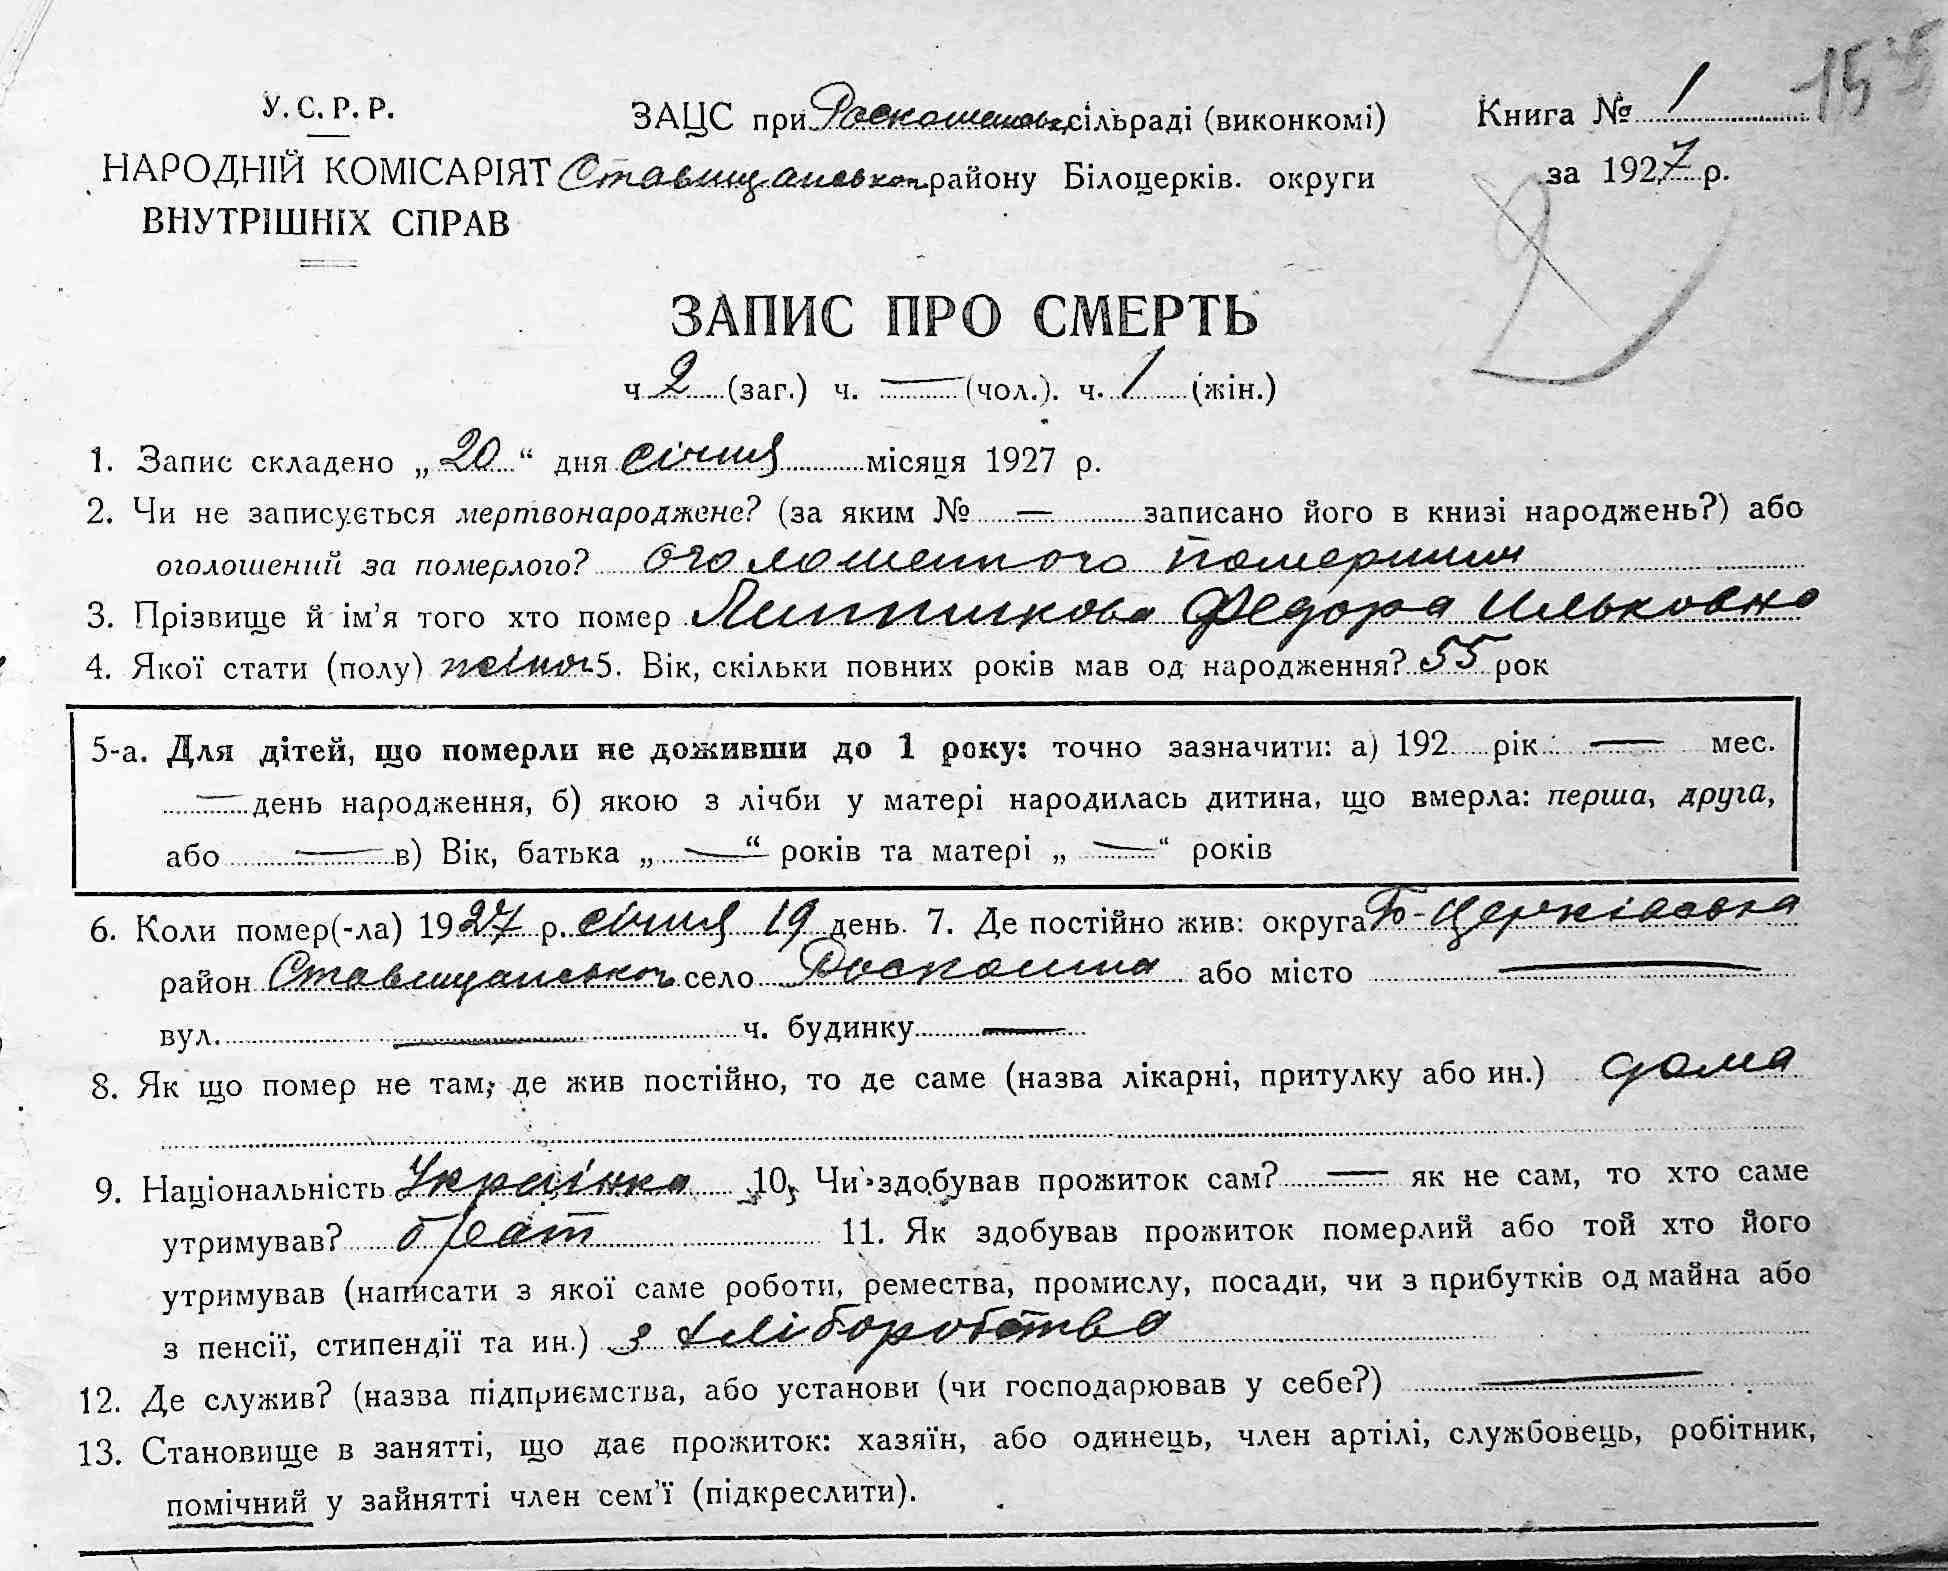 1535
У.С.Р.Р.
НАРОДНІЙ КОМІСАРІЯТ
ВНУТРІШНІХ СПРАВ
ЗАЦС при сільраді (виконкомі)
Ставищанського району Білоцерків. округи
Книга № 1
за 1927 р.
2
ЗАПИС ПРО СМЕРТЬ
ч 2 (заг.) ч. — (чол.). ч. 1 (жін.)
1. Запис складено „20“ дня січня місяця 1927 р.
2. Чи не записується мертвонароджене? (за яким № — записано його в книзі народжень?) або
оголошений за померлого? оголошенного помершим
3. Прізвище й ім’я того хто помер Липникова Федора Ильковна
4. Якої стати (полу) жіноч 5. Вік, скільки повних років мав од народження? 55 рок
5-а. Для дітей, що померли не доживши до 1 року: точно зазначити: а) 192 рік — мес.
— день народження, б) якою з лічби у матері народилась дитина, що вмерла: перша, друга,
або — в) Вік, батька „—“ років та матері „—“ років
6. Коли помер(-ла) 1927 р. січня 19 день. 7. Де постійно жив: округа Б-Церківська
район Ставищанського село Роскошна або місто —
вул. — ч. будинку —
8. Як що помер не там, де жив постійно, то де саме (назва лікарні, притулку або ин.) дома
9. Національність Українка 10, Чи здобував прожиток сам? — як не сам, то хто саме
утримував? брат 11. Як здобував прожиток померлий або той хто його
утримував (написати з якої саме роботи, ремества, промислу, посади, чи з прибутків од майна або
з пенсії, стипендії та ин.) з хліборобства
12. Де служив? (назва підприємства, або установи (чи господарював у себе?) —
13. Становище в занятті, що дає прожиток: хазяїн, або одинець, член артілі, службовець, робітник,
помічний у зайнятті член сем’ї (підкреслити).